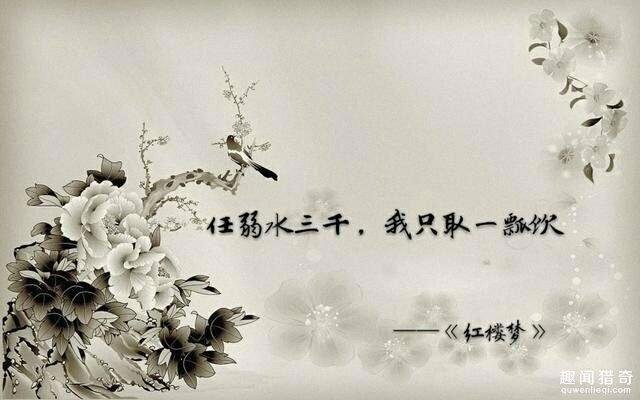 任弱水三千，我只取一瓢饮
——《红楼梦》
趣闻猎奇
quwenlieqi.com